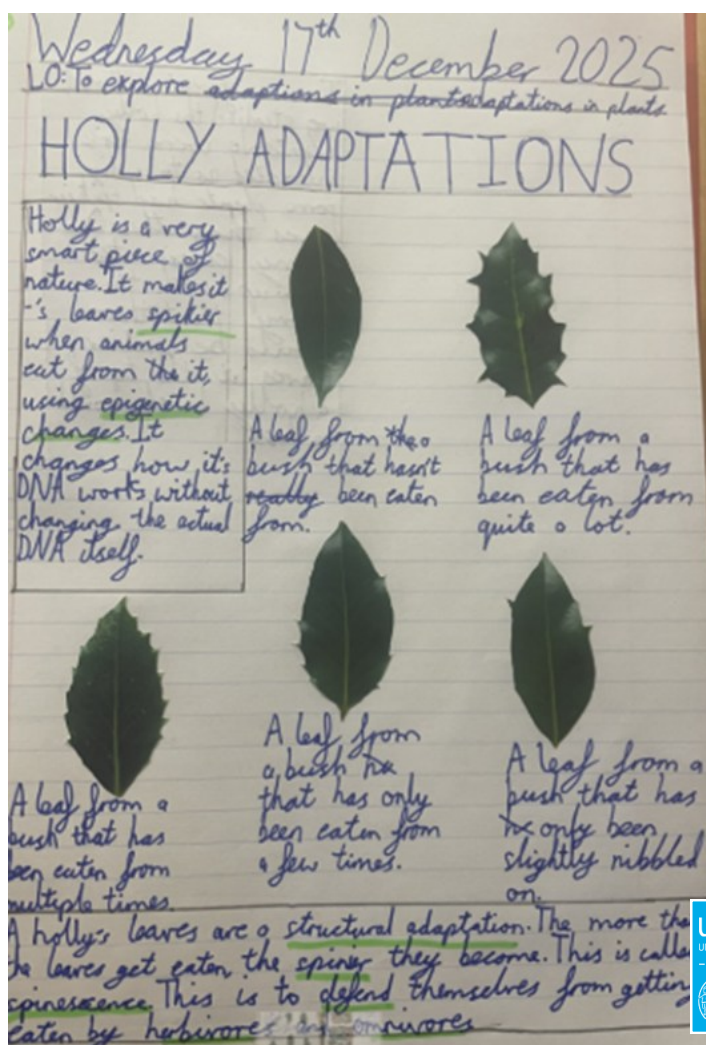 Wednesday 17th December 2025
LO: To explore adaptions in plants adaptations in plants.
HOLLY ADAPTATIONS
Holly is a very
smart piece of
nature. It makes it
-'s leaves spikier
when animals
eat from the it,
using epigenetic
changes. It
changes how it's
DNA works without
changing the actual
DNA itself.
A leaf from the a
bush that hasn't
really been eaten
from.
A leaf from a
bush that has
been eaten from
quite a lot.
A leaf from a
bush that has
been eaten from
multiple times.
A leaf from
a bush
that has only
been eaten from
a few times.
A leaf from a
bush that has
only been
slightly nibbled
on.
A holly's leaves are a structural adaptation. The more tha
the leaves get eaten the spinier they become. This is calle
spinescence. This is to defend themselves from getting
eaten by herbivores and omnivores